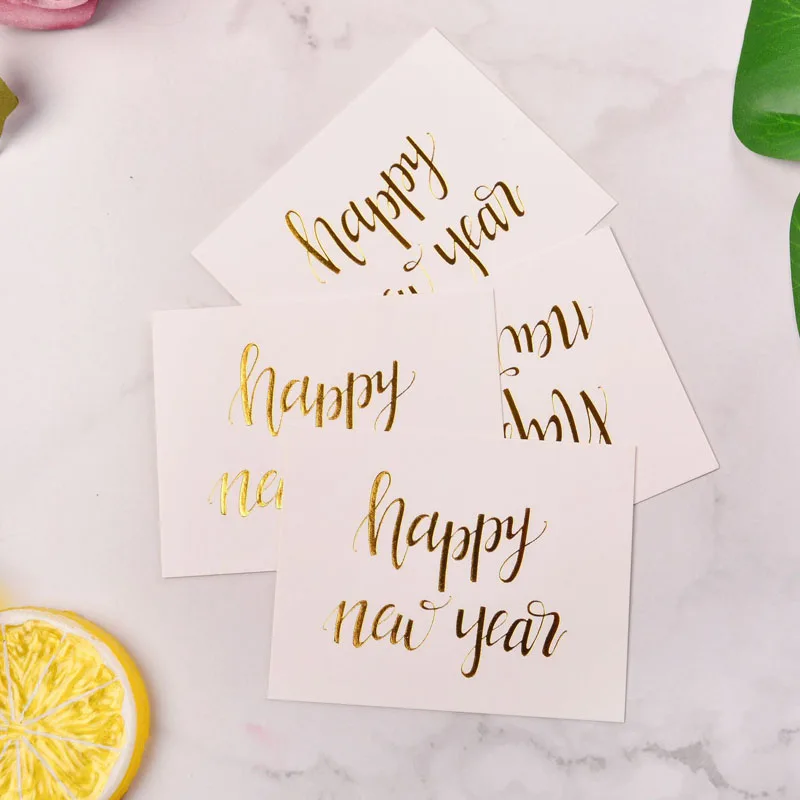 happy
year
happy
new
happy
new year